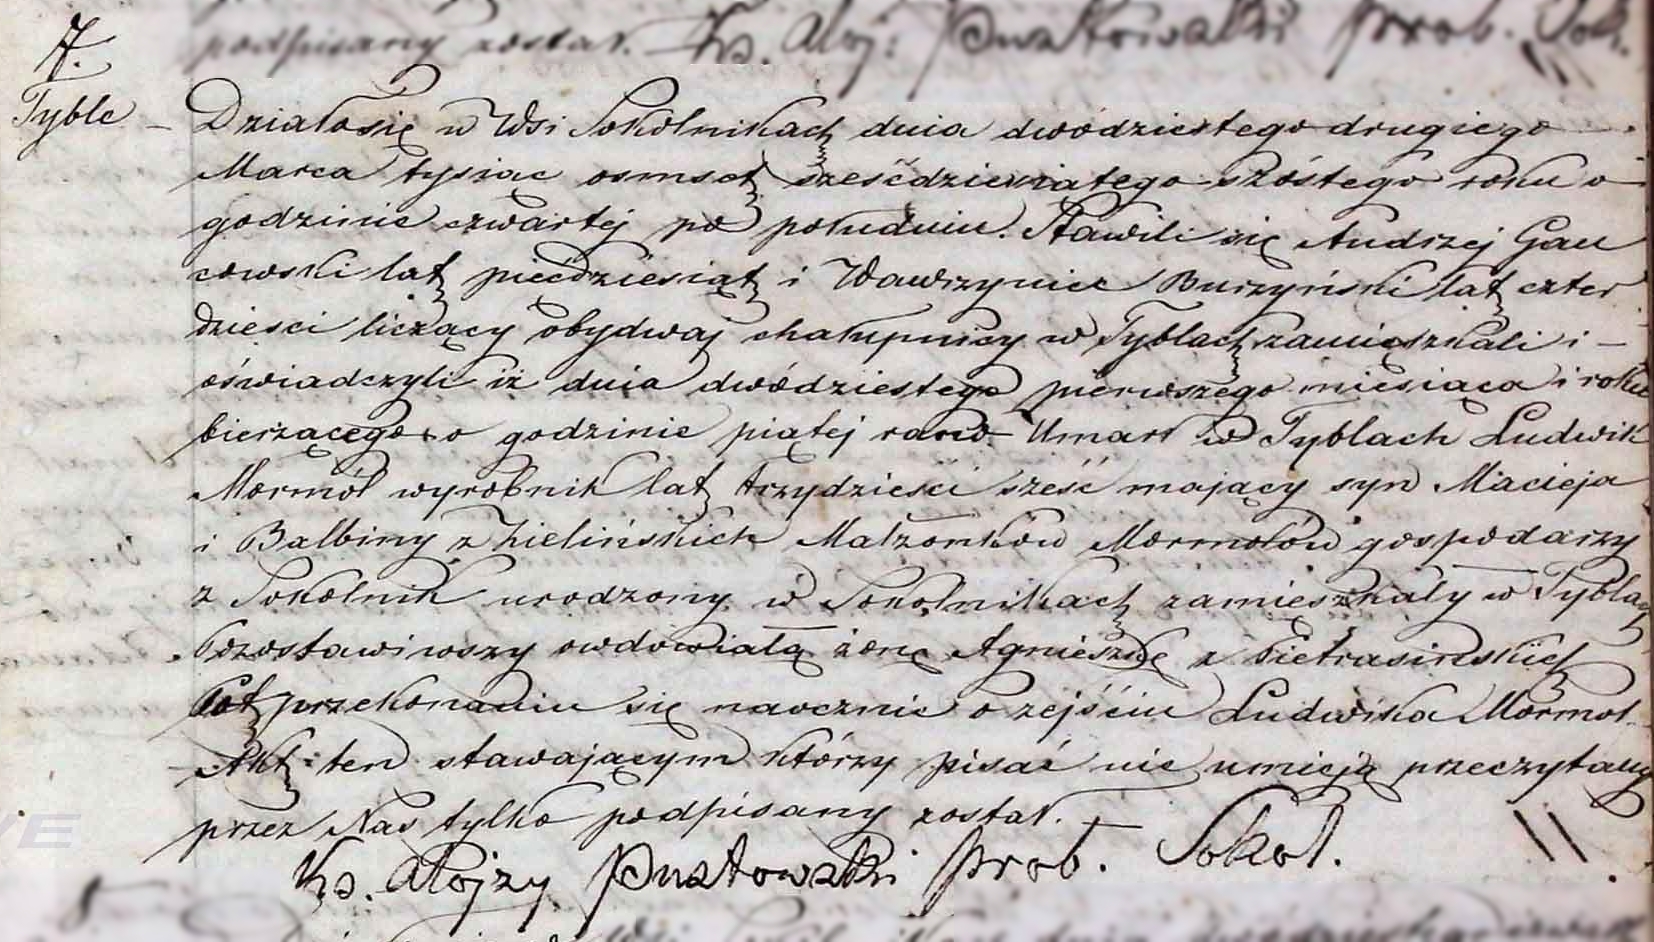 podpisany został. Ks. Aloj: Pustowalski prob. Sok.
7.
Tyble –
Działo się w Wsi Sokolnikach dnia dwódziestego drugiego
Marca tysiąc osmset sześćdziesiątego szóstego roku o
godzinie czwartej po południu. Stawili się Andrzej Gau
cowski lat pięćdziesiąt i Wawrzyniec Burzyński lat czter
dzieści liczący obydwaj chałupnicy w Tyblach zamięszkali i –
oświadczyli iż dnia dwódziestego pierwszego miesiąca i roku
bierzącego o godzinie piątej rano Umarł w Tyblach Ludwik
Mormół wyrobnik lat trzydzieści sześć mający syn Macieja
i Balbiny z Zielińskich Małżonków Mormołów gospodarzy
z Sokolnik urodzony w Sokolnikach zamieszkały w Tyblach
Pozostawiwszy owdowiałą żonę Agnieszkę z Pietrasińskich
Pot przekonaniu się naocznie o zejściu Ludwika Mormoł
Akt ten stawającym którzy pisać nie umieją przeczytany
przez Nas tylko podpisany został. –
Ks. Alojzy Pustowalski prob. Sokol.